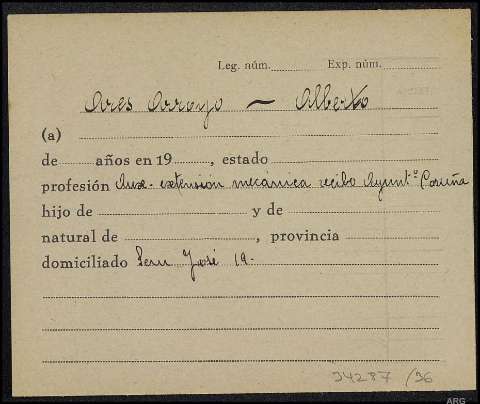 Leg. núm. Exp. núm.
Ares Arroyo — Alberto
(a)
de años en 19 , estado
profesión Aux. extensión mecánica recibo Ayunt.º Coruña
hijo de y de
natural de , provincia
domiciliado San José 19.
94287/36
ARG